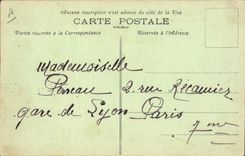 Aucune inscription n'est admise du côté de la Vue
CARTE POSTALE
Partie réservée à la Correspondance
Réservée à l'Adresse
Mademoiselle
2 rue Récamier
gare de Lyon Paris